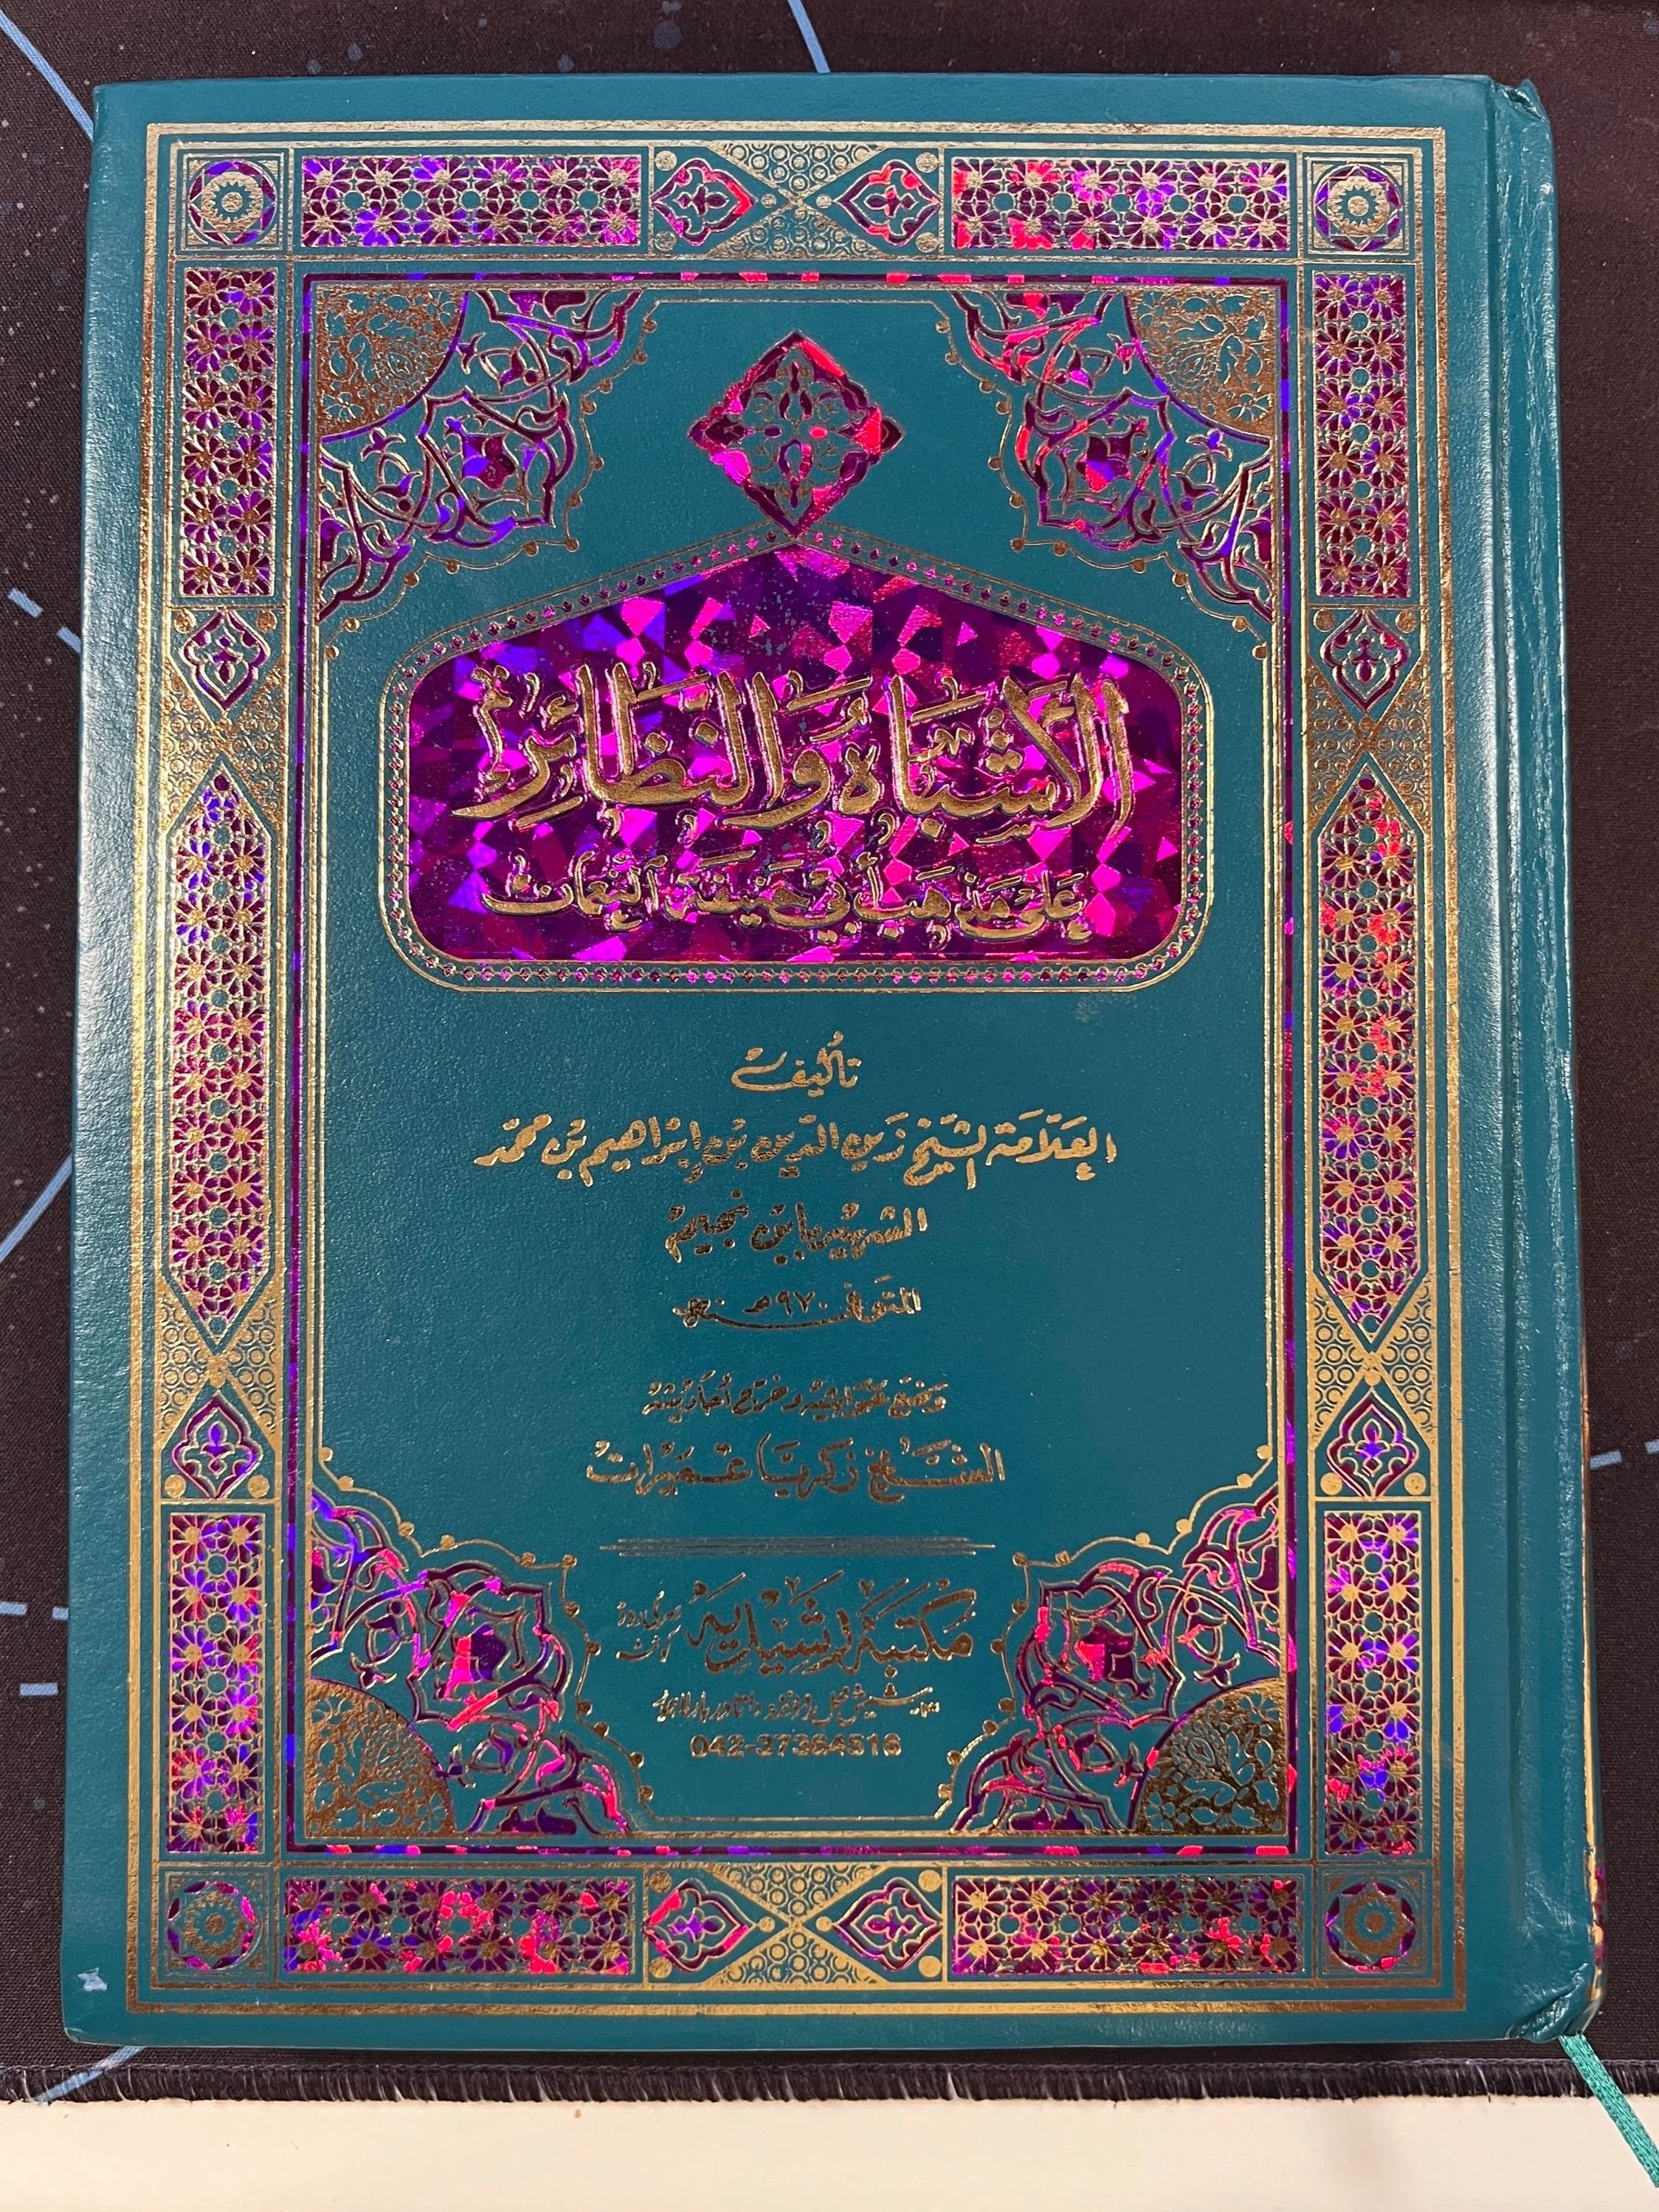 الأَشْبَاهُ وَالنَّظَائِرُ
عَلى مَذهَب أَبي حَنيفَة النِّعمان
تأليف
العَلّامَة الشّيخ زَين الدّين بن إبْراهيم بن محمّد
الشهير بابن نجيم
المتوفى ٩٧٠هـ
وَضَع حَوَاشِيه وخرّج أحَاديثه
الشَّيْخ زكريَّا عُمَيْرات
مکتبۃ رشیدیہ
042-37364516